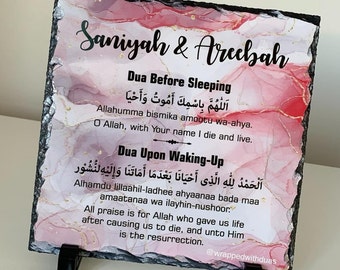 Saniyah & Areebah
Dua Before Sleeping
اَللّٰهُمَّ بِاسْمِكَ أَمُوْتُ وَأَحْيَا
Allahumma bismika amootu wa-ahya.
O Allah, with Your name I die and live.
Dua Upon Waking-Up
اَلْحَمْدُ لِلّٰهِ الَّذِى أَحْيَانَا بَعْدَمَا أَمَاتَنَا وَاِلَيْهِ النُّشُوْر
Alhamdu lillaahil-ladhee ahyaanaa bada maa
amaatanaa wa ilayhin-nushoor.
All praise is for Allah who gave us life
after causing us to die, and unto Him
is the resurrection.
@wrappedwithduas